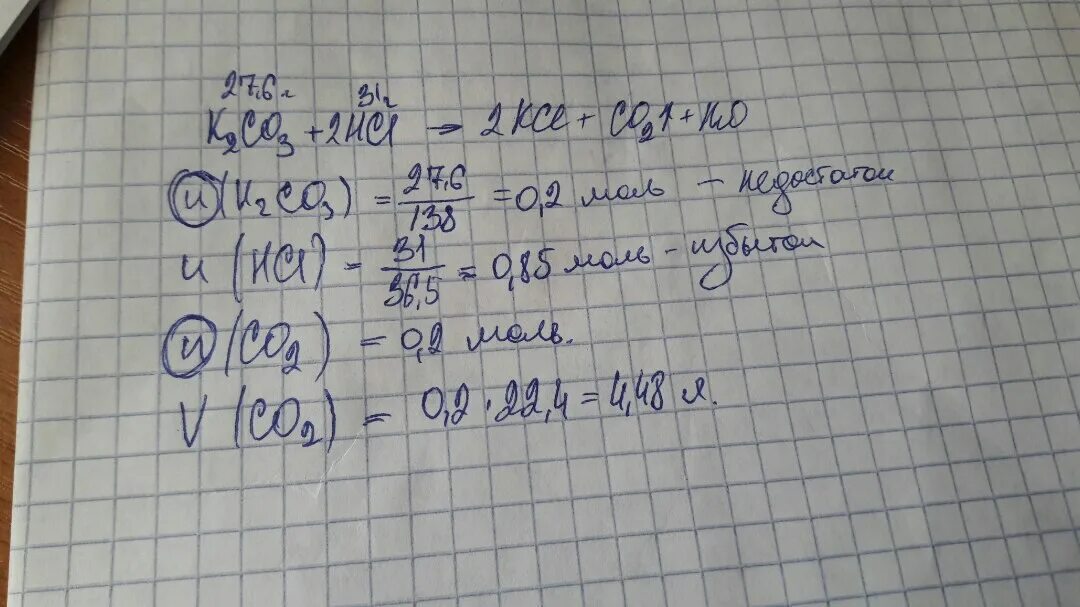 27,6 г 31 г
K₂CO₃ + 2HCl → 2KCl + CO₂↑ + H₂O
n (K₂CO₃) = 27,6/138 = 0,2 моль – недостаток
n (HCl) = 31/36,5 = 0,85 моль – избыток
n (CO₂) = 0,2 моль.
V (CO₂) = 0,2 · 22,4 = 4,48 л.